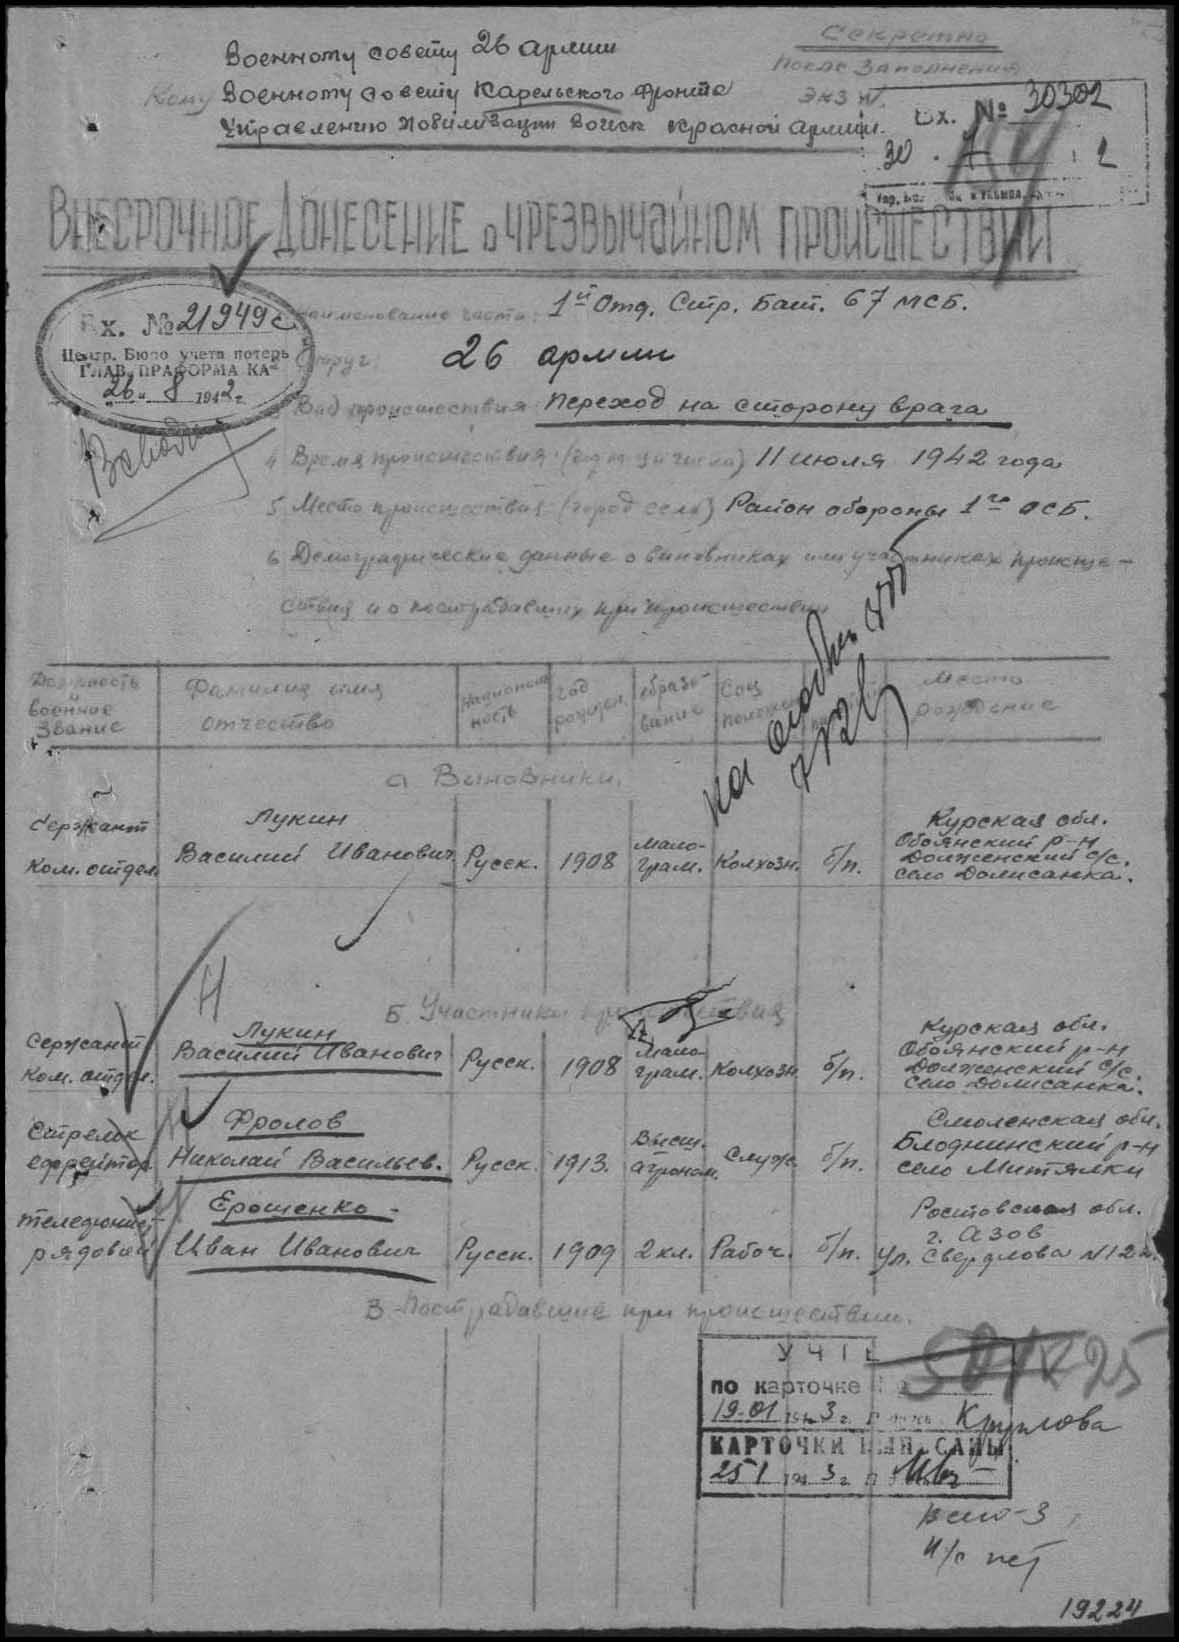 Секретно
после заполнения
экз №
Военному совету 26 армии
Кому Военному совету Карельского фронта
Управлению мобилизации войск Красной армии.
Вх. № 30302
30
ВНЕСРОЧНОЕ ДОНЕСЕНИЕ о ЧРЕЗВЫЧАЙНОМ ПРОИСШЕСТВИИ
Вх. № 21949с
Центр. Бюро учета потерь
ГЛАВ. ПРАФОРМА КА
26 " 8 1942 г.
наименование части: 1й Отд. Стр. Бат. 67 МСБ.
Округ 26 армии
Вид происшествия: Переход на сторону врага
4 Время происшествия: (год м-ц и число) 11 июля 1942 года
5. Место происшествия: (город село) Район обороны 1го ОСБ.
6 Демографические данные о виновниках или участниках происше-
ствия и о пострадавших при происшествии
Должность и военное звание | Фамилия имя отчество | Национальность | Год рожден. | образо-вание | Соц положен | Место рождение
а Виновники.
Сержант Ком. отдел. | Лукин Василий Иванович | Русск. | 1908 | Мало-грам. | Колхозн. | б/п. | Курская обл. Обоянский р-н Долженский с/с. село Долисанка.
Б. Участники происшествия
Сержант Ком. отдел. | Лукин Василий Иванович | Русск. | 1908 | Мало-грам. | Колхозн | б/п. | Курская обл. Обоянский р-н Долженский с/с. село Долисанка.
Стрелок ефрейтор | Фролов Николай Васильев. | Русск. | 1913. | Высш. агроном. | Служ. | б/п. | Смоленская обл. Блодминский р-н село Митялки
телефонист рядовой | Ерошенко Иван Иванович | Русск. | 1909 | 2 кл. | Рабоч. | б/п. | Ростовская обл. г. Азов ул. Свердлова №12
В. Пострадавшие при происшествии.
УЧТЕ
по карточке
19-01 1943 г. Круглова
КАРТОЧКИ ВЫПИСАНЫ
25 1 1943 г.
всего-3
н/с нет
19224